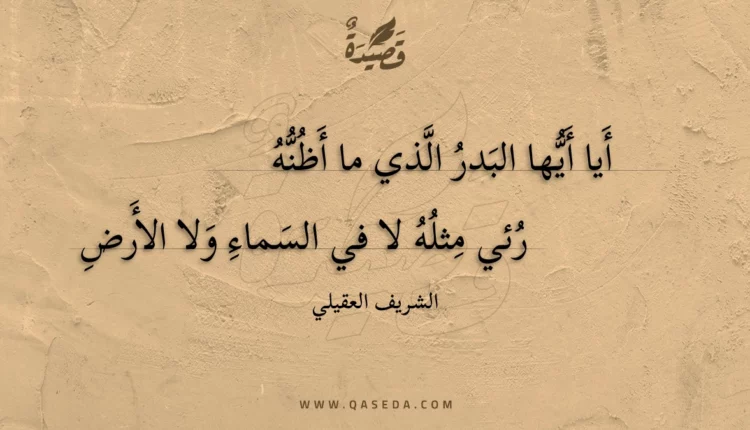 قَصِيدَةٌ
أَيا أَيُّها البَدرُ الَّذي ما أَظُنُّهُ
رُئي مِثلُهُ لا في السَماءِ وَلا الأَرضِ
الشريف العقيلي
WWW.QASEDA.COM